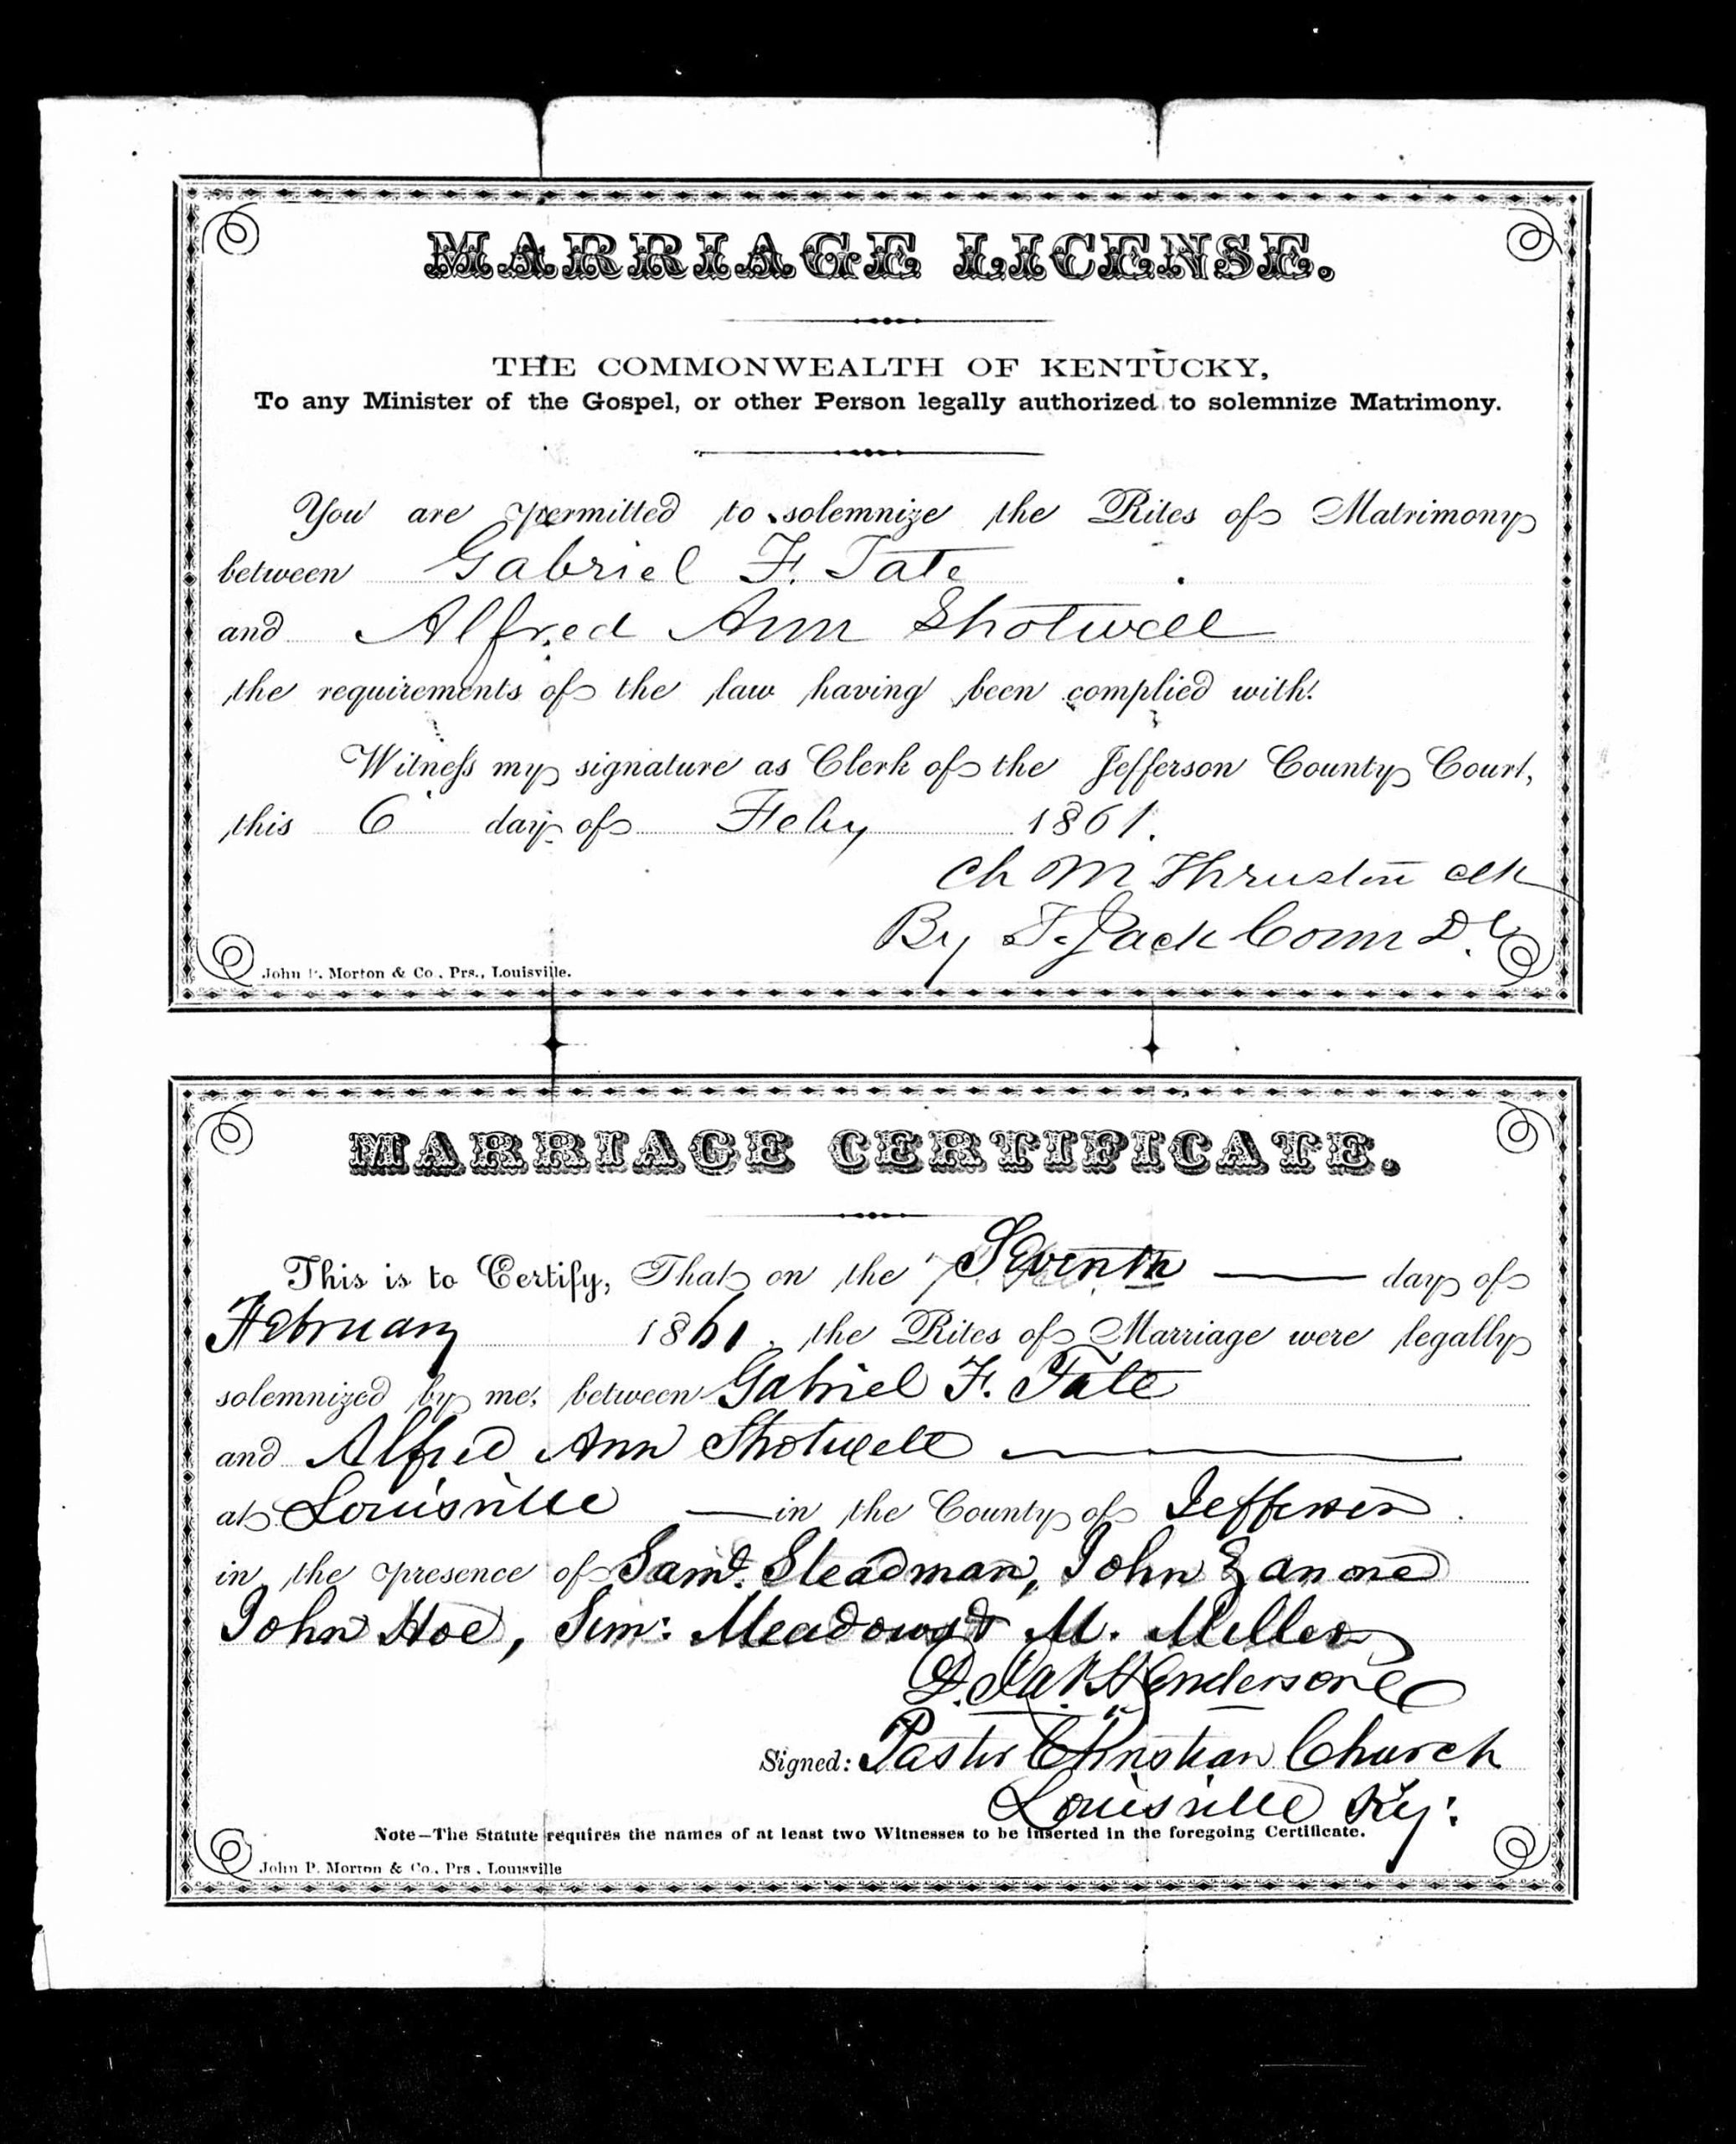 MARRIAGE LICENSE.
THE COMMONWEALTH OF KENTUCKY,
To any Minister of the Gospel, or other Person legally authorized to solemnize Matrimony.
You are permitted to solemnize the Rites of Matrimony
between Gabriel F. Tate
and Alfred Ann Shotwell
the requirements of the law having been complied with.
Witness my signature as Clerk of the Jefferson County Court,
this 6 day of Feby 1861.
Ch M Thruston clk
By T. Jack Conn D.C.
John P. Morton & Co., Prs., Louisville.
MARRIAGE CERTIFICATE.
This is to Certify, That on the Seventh day of
February 1861, the Rites of Marriage were legally
solemnized by me, between Gabriel F. Tate
and Alfred Ann Shotwell
at Louisville in the County of Jefferson.
in the presence of Saml. Steadman, John Zanone
John Hoe, Sim: Meadows & M. Miller
D. Henderson
Signed: Pastor Christian Church
Louisville Ky:
Note—The Statute requires the names of at least two Witnesses to be inserted in the foregoing Certificate.
John P. Morton & Co., Prs., Louisville